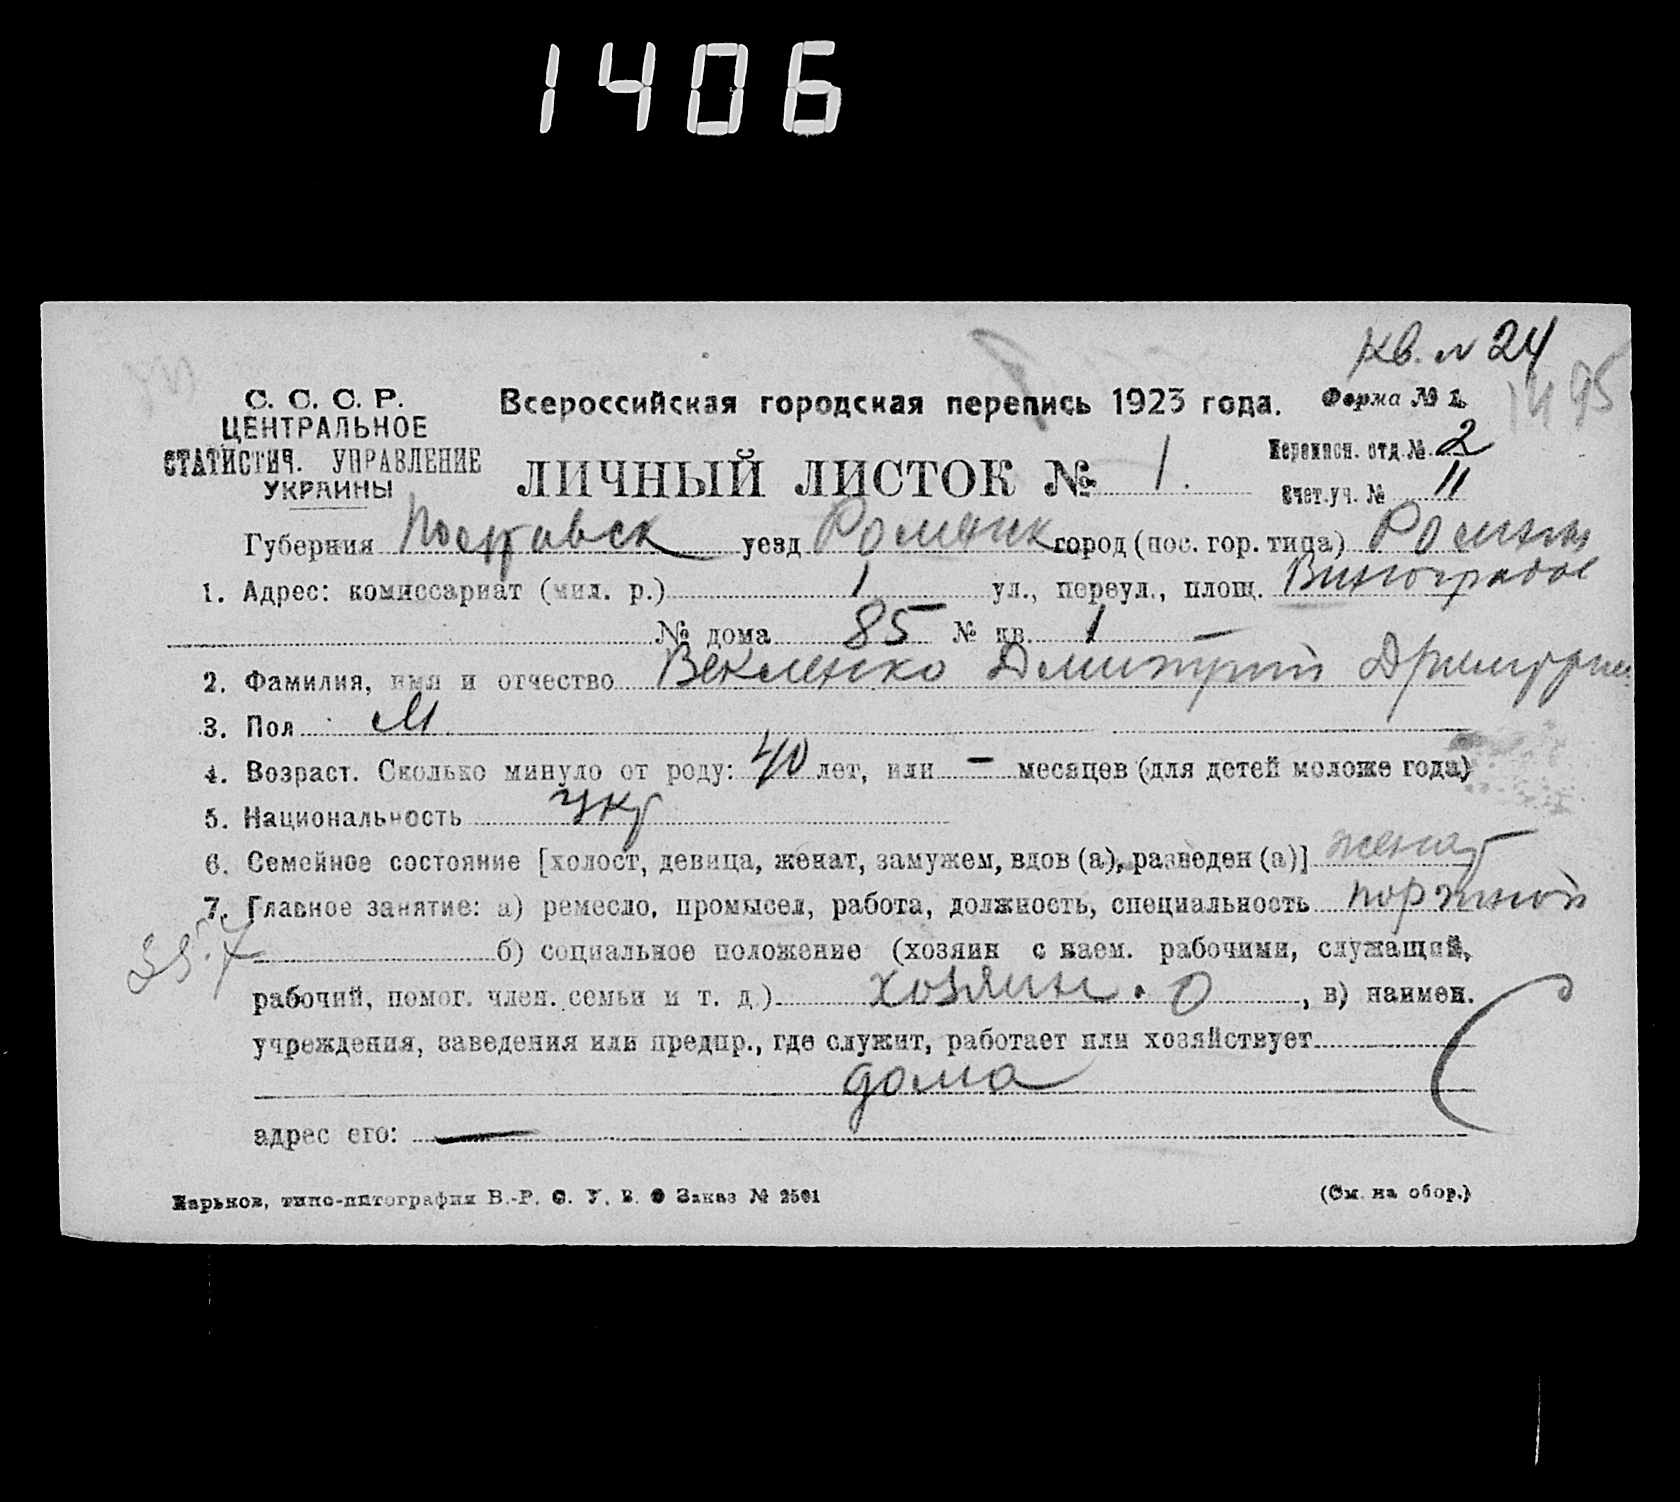 1406
кв. № 24
С. С. С. Р.
ЦЕНТРАЛЬНОЕ
СТАТИСТИЧ. УПРАВЛЕНИЕ
УКРАИНЫ
Всероссийская городская перепись 1923 года.
Форма № 1.
1495
ЛИЧНЫЙ ЛИСТОК № 1.
Переписн. отд. № 2
Счет. уч. № 11
Губерния Полтавск уезд Роменск город (пос. гор. типа) Ромны
1. Адрес: комиссариат (мил. р.) 1 ул., переул., площ. Виноградов
№ дома 85 № кв. 1
2. Фамилия, имя и отчество Векленко Дмитрий
3. Пол М
4. Возраст. Сколько минуло от роду: 40 лет, или – месяцев (для детей моложе года)
5. Национальность укр
6. Семейное состояние [холост, девица, женат, замужем, вдов (а), разведен (а)] женат
7. Главное занятие: а) ремесло, промысел, работа, должность, специальность портной
б) социальное положение (хозяин с наем. рабочими, служащий,
рабочий, помог. член. семьи и т. д.) хозяин. О, в) наимен.
учреждения, заведения или предпр., где служит, работает или хозяйствует
дома
адрес его: —
Харьков, типо-литография В.-Р. С. У. В. О Заказ № 2501
(См. на обор.)